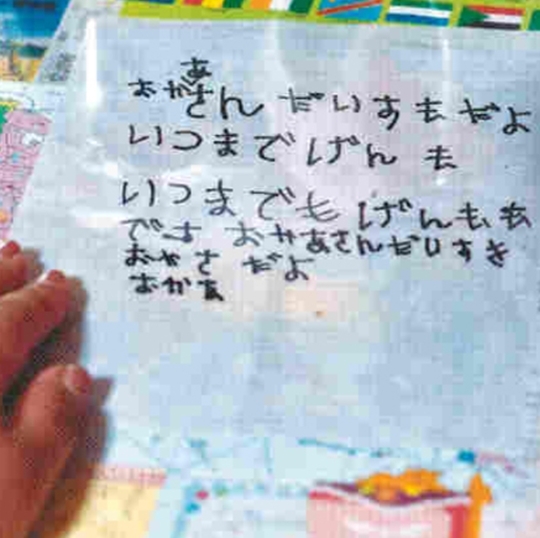 おかあさんだいすきだよ
いつまでげんき
いつまでもげんもき
でき おかあさんだいすき
おかさ だよ
おかあ